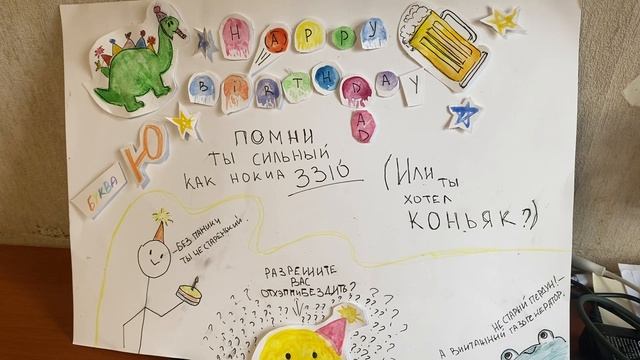 HAPPY
BIRTHDAY
DAD
БУКВА
Ю
ПОМНИ
ТЫ СИЛЬНЫЙ
КАК НОКИА 3310
(ИЛИ ТЫ
ХОТЕЛ
КОНЬЯК?)
-БЕЗ ПАНИКИ
ТЫ НЕ СТАРЕНЬКИЙ
РАЗРЕШИТЕ
ВАС
ОТХЭППИБЕЗДИТЬ?
НЕ СТАРЫЙ ПЕРДУН!-
А ВИНТАЖНЫЙ ГАЗОГЕНЕРАТОР.